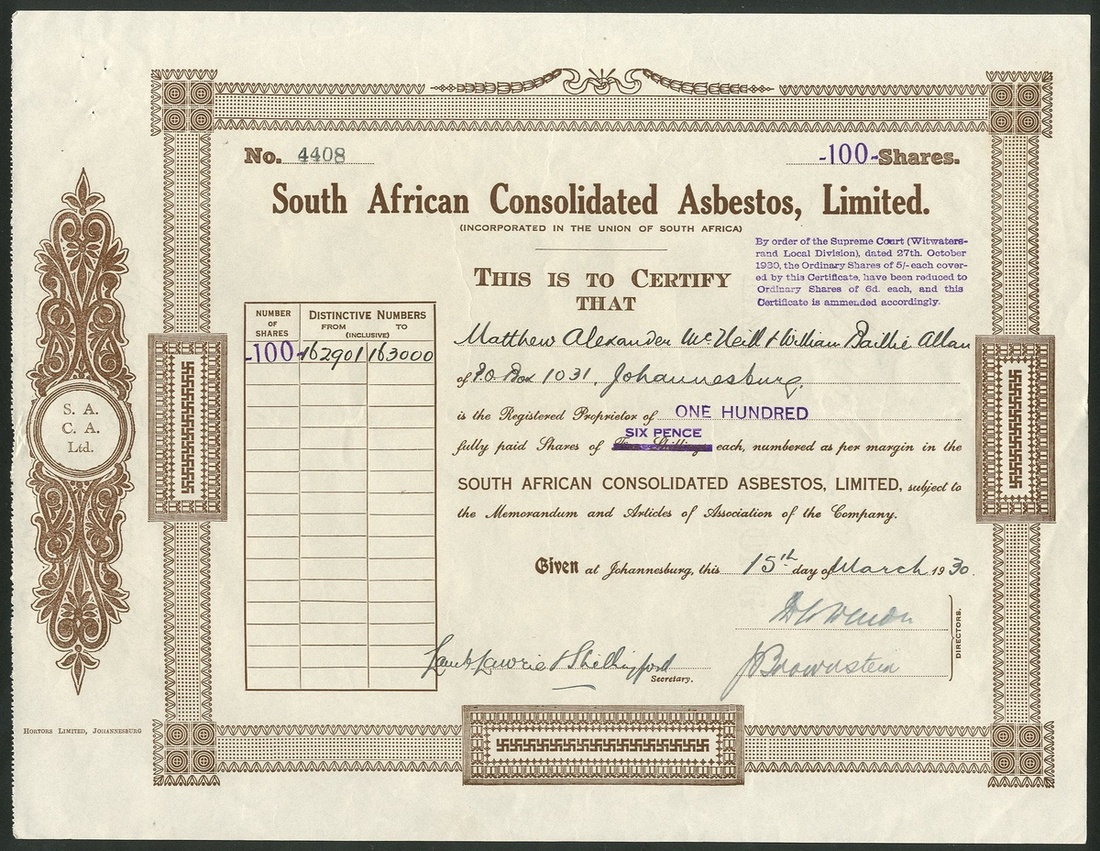 No. 4408
-100-Shares.
South African Consolidated Asbestos, Limited.
(INCORPORATED IN THE UNION OF SOUTH AFRICA)
By order of the Supreme Court (Witwaters-
rand Local Division), dated 27th. October
1930, the Ordinary Shares of 5/- each cover-
ed by this Certificate, have been reduced to
Ordinary Shares of 6d. each, and this
Certificate is ammended accordingly.
THIS IS TO CERTIFY
THAT
NUMBER
OF
SHARES
DISTINCTIVE NUMBERS
FROM TO
(INCLUSIVE)
-100- 162901 163000
Matthew Alexander McNeill & William Baillie Allan
of P.O. Box 1031, Johannesburg,
is the Registered Proprietor of ONE HUNDRED
SIX PENCE
fully paid Shares of Shillings each, numbered as per margin in the
SOUTH AFRICAN CONSOLIDATED ASBESTOS, LIMITED, subject to
the Memorandum and Articles of Association of the Company.
Given at Johannesburg, this 15th day of March 1930.
Lawrie & Shellingford
Secretary.
JBrownstein
DIRECTORS.
S. A.
C. A.
Ltd.
HORTORS LIMITED, JOHANNESBURG